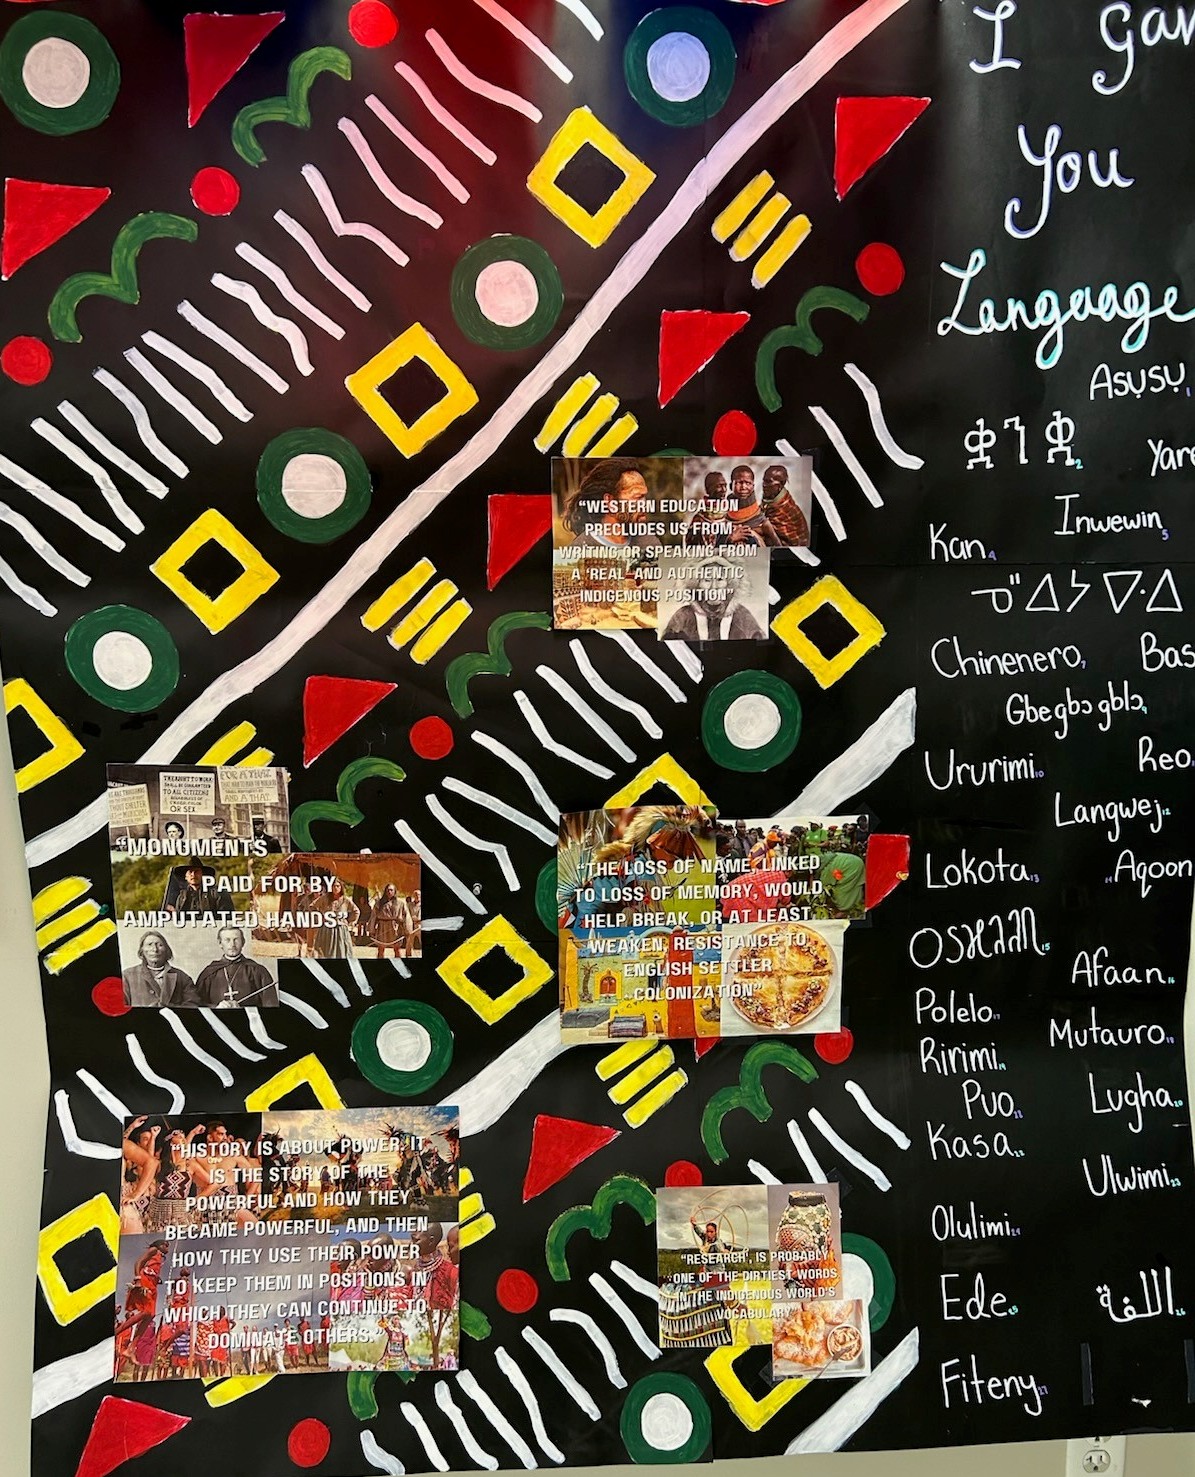 I Gav
You
Language
Asụsụ 1
ቋንቋ 2
Yare
Inwewin 5
Kan 4
Chinenero 7
Bas
Gbegbɔgblɔ 9
Ururimi 10
Reo
Langwej 12
Lokota 13
14 Aqoon
Afaan 16
Polelo 17
Mutauro 18
Ririmi 19
Puo 21
Lugha 20
Kasa 22
Ulwimi 23
Olulimi 24
Ede 25
اللغة 26
Fiteny 27
“WESTERN EDUCATION
PRECLUDES US FROM
WRITING OR SPEAKING FROM
A ‘REAL’ AND AUTHENTIC
INDIGENOUS POSITION”
TO ALL CITIZENS
OR SEX
FOR A' THAT
AND A' THAT
“MONUMENTS
PAID FOR BY
AMPUTATED HANDS”
“THE LOSS OF NAME, LINKED
TO LOSS OF MEMORY, WOULD
HELP BREAK, OR AT LEAST
WEAKEN, RESISTANCE TO
ENGLISH SETTLER
COLONIZATION”
“HISTORY IS ABOUT POWER. IT
IS THE STORY OF THE
POWERFUL AND HOW THEY
BECAME POWERFUL, AND THEN
HOW THEY USE THEIR POWER
TO KEEP THEM IN POSITIONS IN
WHICH THEY CAN CONTINUE TO
DOMINATE OTHERS.”
“RESEARCH’, IS PROBABLY
ONE OF THE DIRTIEST WORDS
IN THE INDIGENOUS WORLD’S
VOCABULARY”